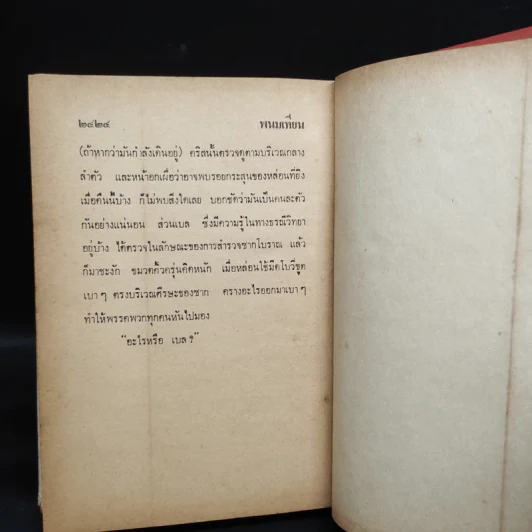 ๒๔๒๔ พนมเทียน
(ถ้าหากว่ามันกำลังเดินอยู่) คริสนั้นตรวจดูตามบริเวณกลาง
ลำตัว และหน้าอกเผื่อว่าอาจพบรอยกระสุนของหล่อนที่ยิง
เมื่อคืนนี้บ้าง ก็ไม่พบสิ่งใดเลย บอกชัดว่ามันเป็นคนละตัว
กันอย่างแน่นอน ส่วนเบล ซึ่งมีความรู้ในทางธรณีวิทยา
อยู่บ้าง ได้ตรวจในลักษณะของการสำรวจซากโบราณ แล้ว
ก็มาชะงัก ขมวดคิ้วครุ่นคิดหนัก เมื่อหล่อนใช้มีดโบวี่ขูด
เบา ๆ ตรงบริเวณศีรษะของซาก ครางอะไรออกมาเบา ๆ
ทำให้พรรคพวกทุกคนหันไปมอง
"อะไรหรือ เบล ?"